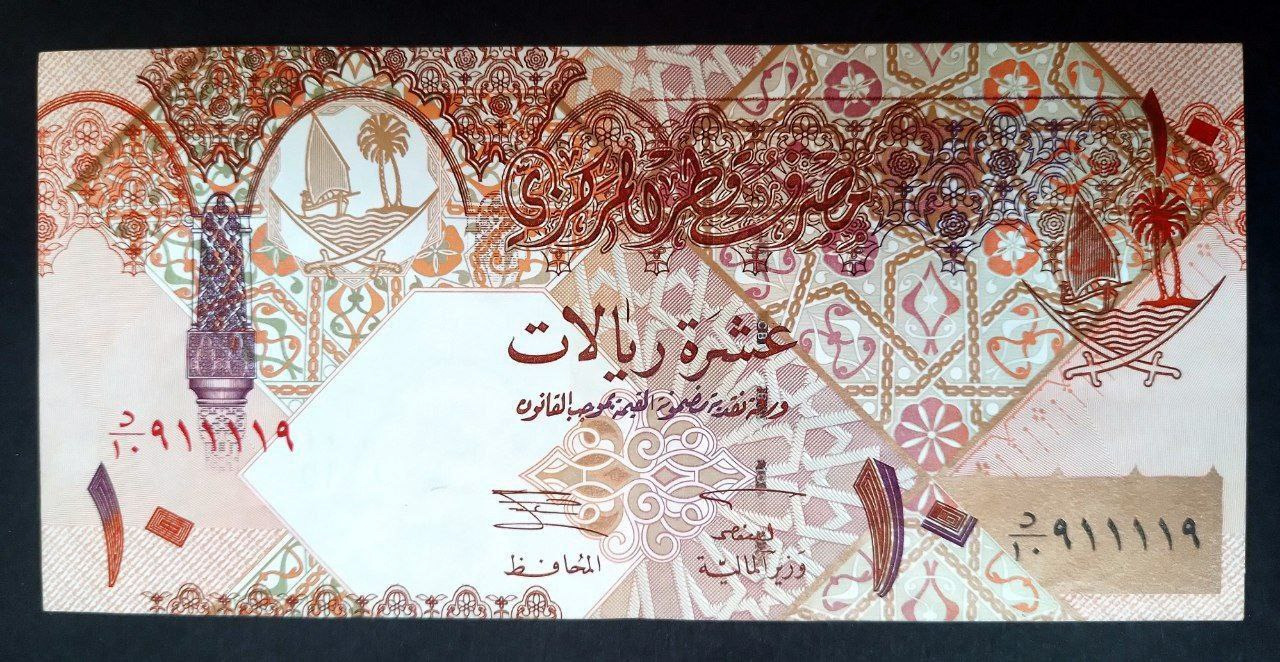 مصرف قطر المركزي
١٠
عشرة ريالات
ورقة نقدية مضمونة القيمة بموجب القانون
د/١٠ ٩١١١١٩
١٠
١٠
د/١٠ ٩١١١١٩
وزير المالية
المحافظ